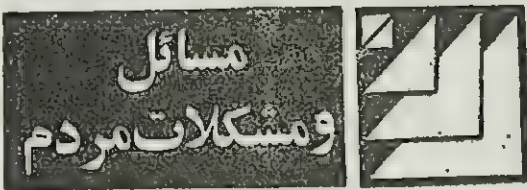 مسائل
ومشکلات مردم